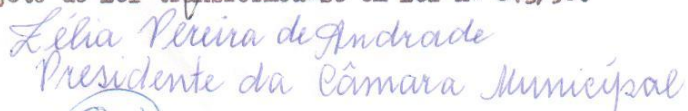 Zélia Pereira de Andrade
Presidente da Câmara Municipal